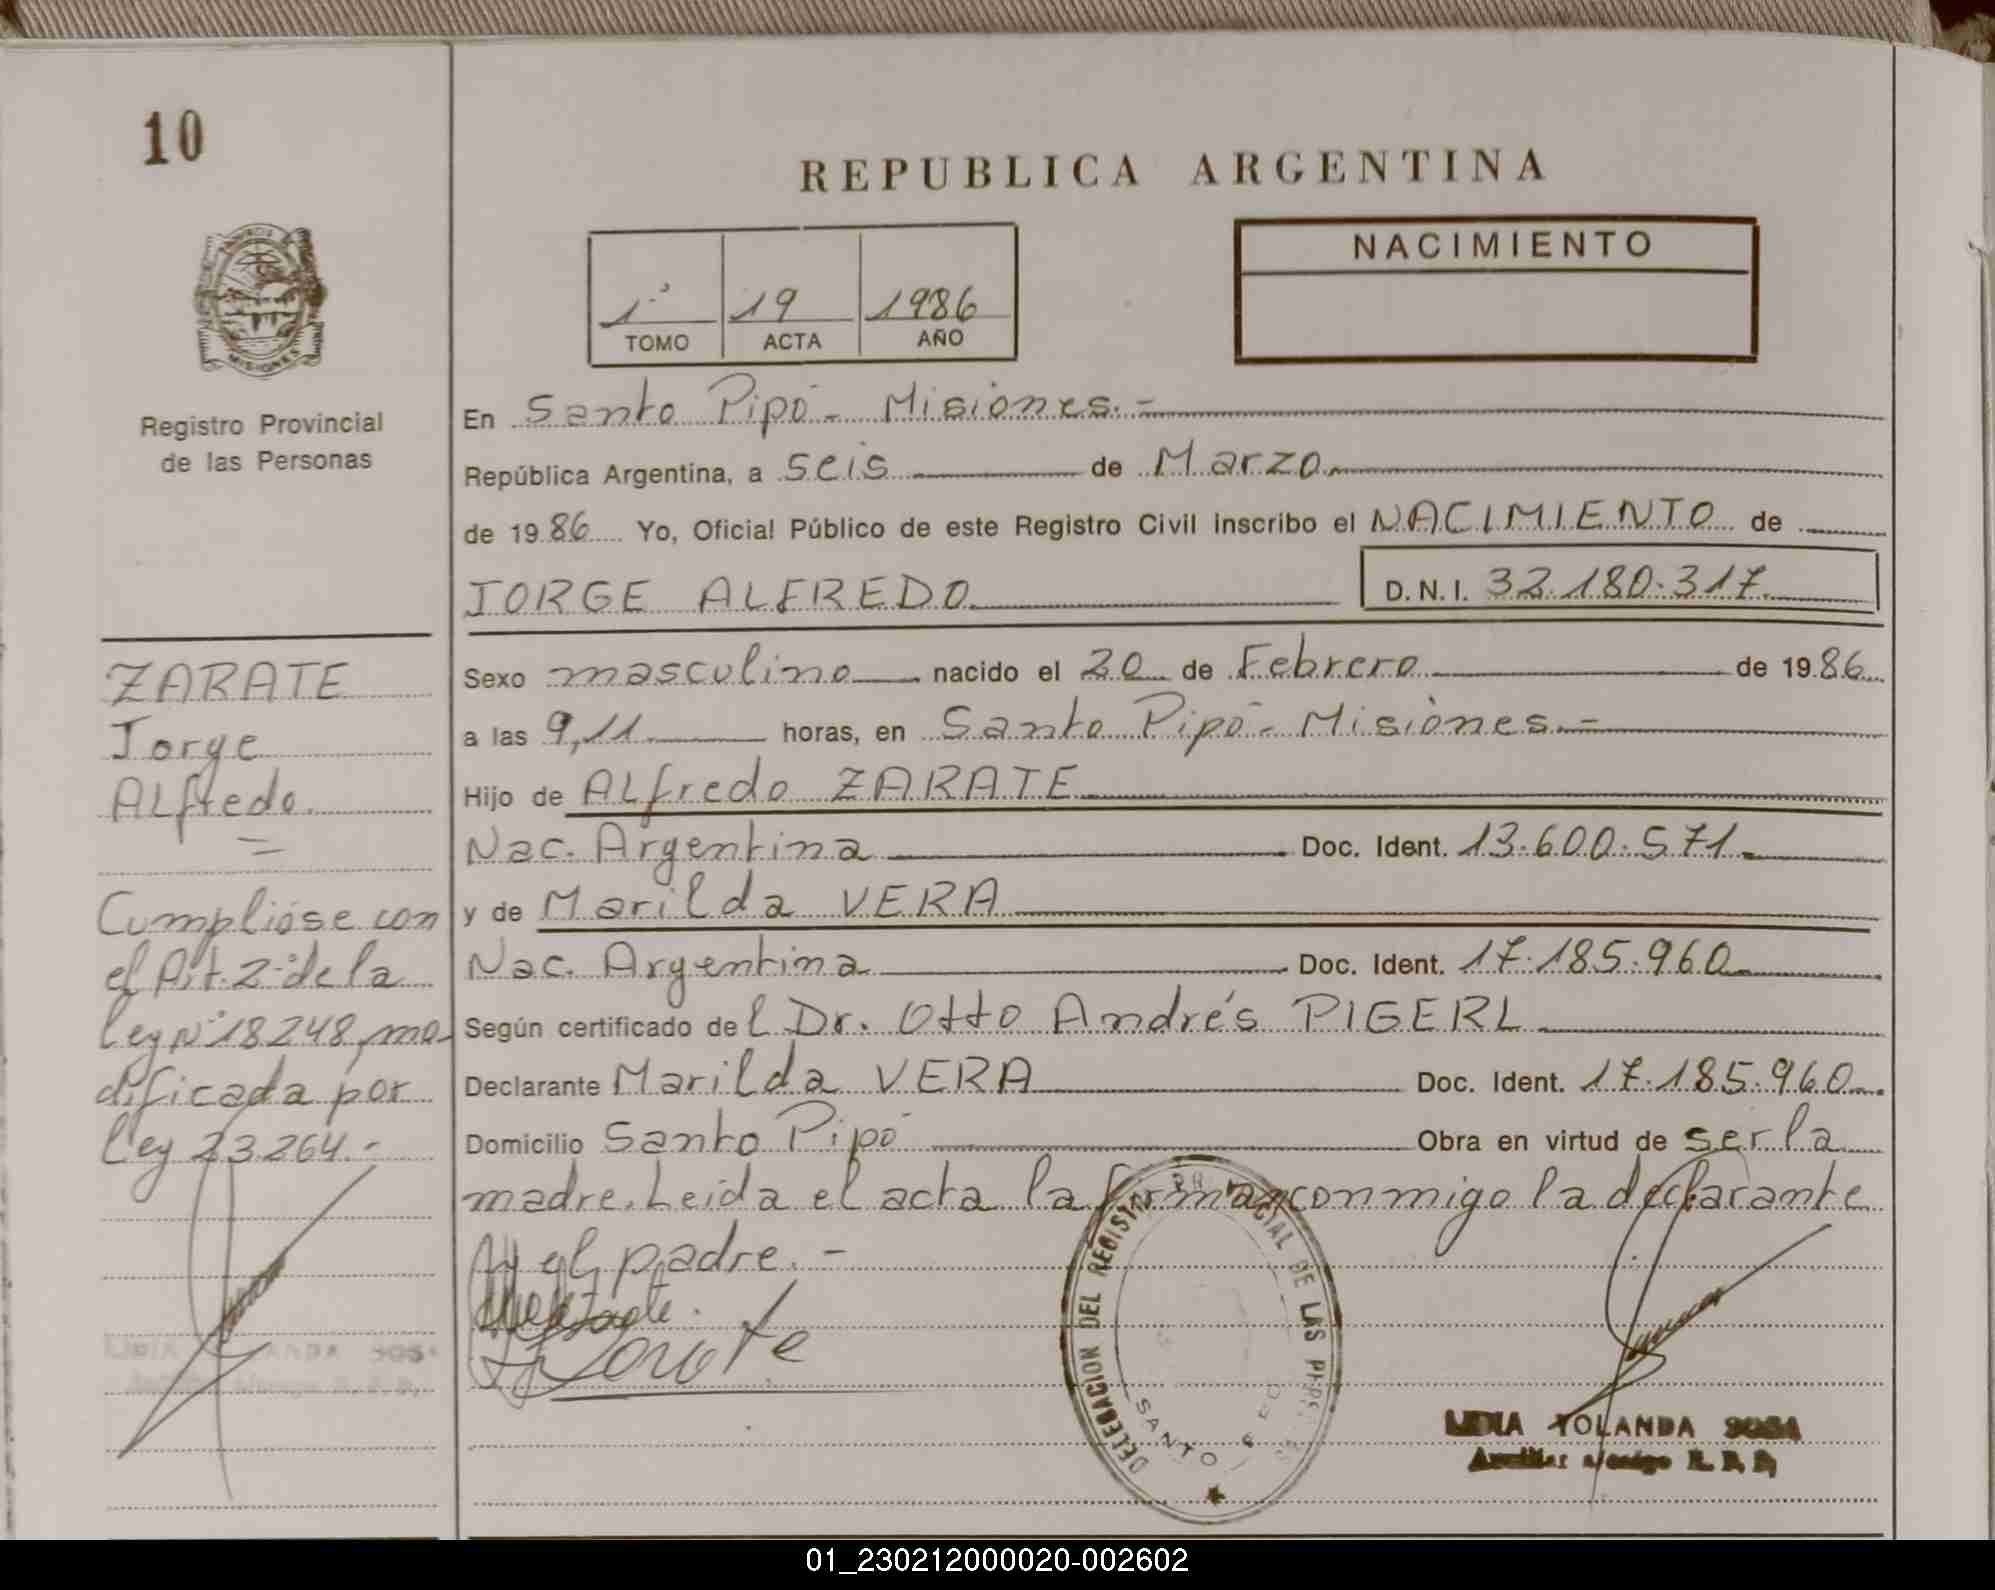 10
REPUBLICA ARGENTINA
NACIMIENTO
1º 19 1986
TOMO ACTA AÑO
MISIONES
Registro Provincial
de las Personas
En Santo Pipó - Misiones.-
República Argentina, a seis de Marzo
de 1986 Yo, Oficial Público de este Registro Civil inscribo el NACIMIENTO de
JORGE ALFREDO D.N.I. 32.180.317
Sexo masculino nacido el 20 de Febrero de 1986
a las 9,11 horas, en Santo Pipó - Misiones.-
Hijo de Alfredo ZARATE
Nac. Argentina Doc. Ident. 13.600.571.-
y de Marilda VERA
Nac. Argentina Doc. Ident. 17.185.960
Según certificado del Dr. Otto Andrés PIGERL
Declarante Marilda VERA Doc. Ident. 17.185.960
Domicilio Santo Pipó Obra en virtud de ser la
madre. Leida el acta la firman conmigo la declarante
y el padre.-
ZARATE
Jorge
Alfredo.
=
Cumplióse con
el Art. 2º de la
Ley Nº 18248, mo-
dificada por
Ley 23264.-
Zarate
DELEGACION DEL REGISTRO PROVINCIAL DE LAS PERSONAS
SANTO
LIDIA YOLANDA SOSA
Auxiliar R. P. P.
LIDIA YOLANDA SOSA
01_230212000020-002602